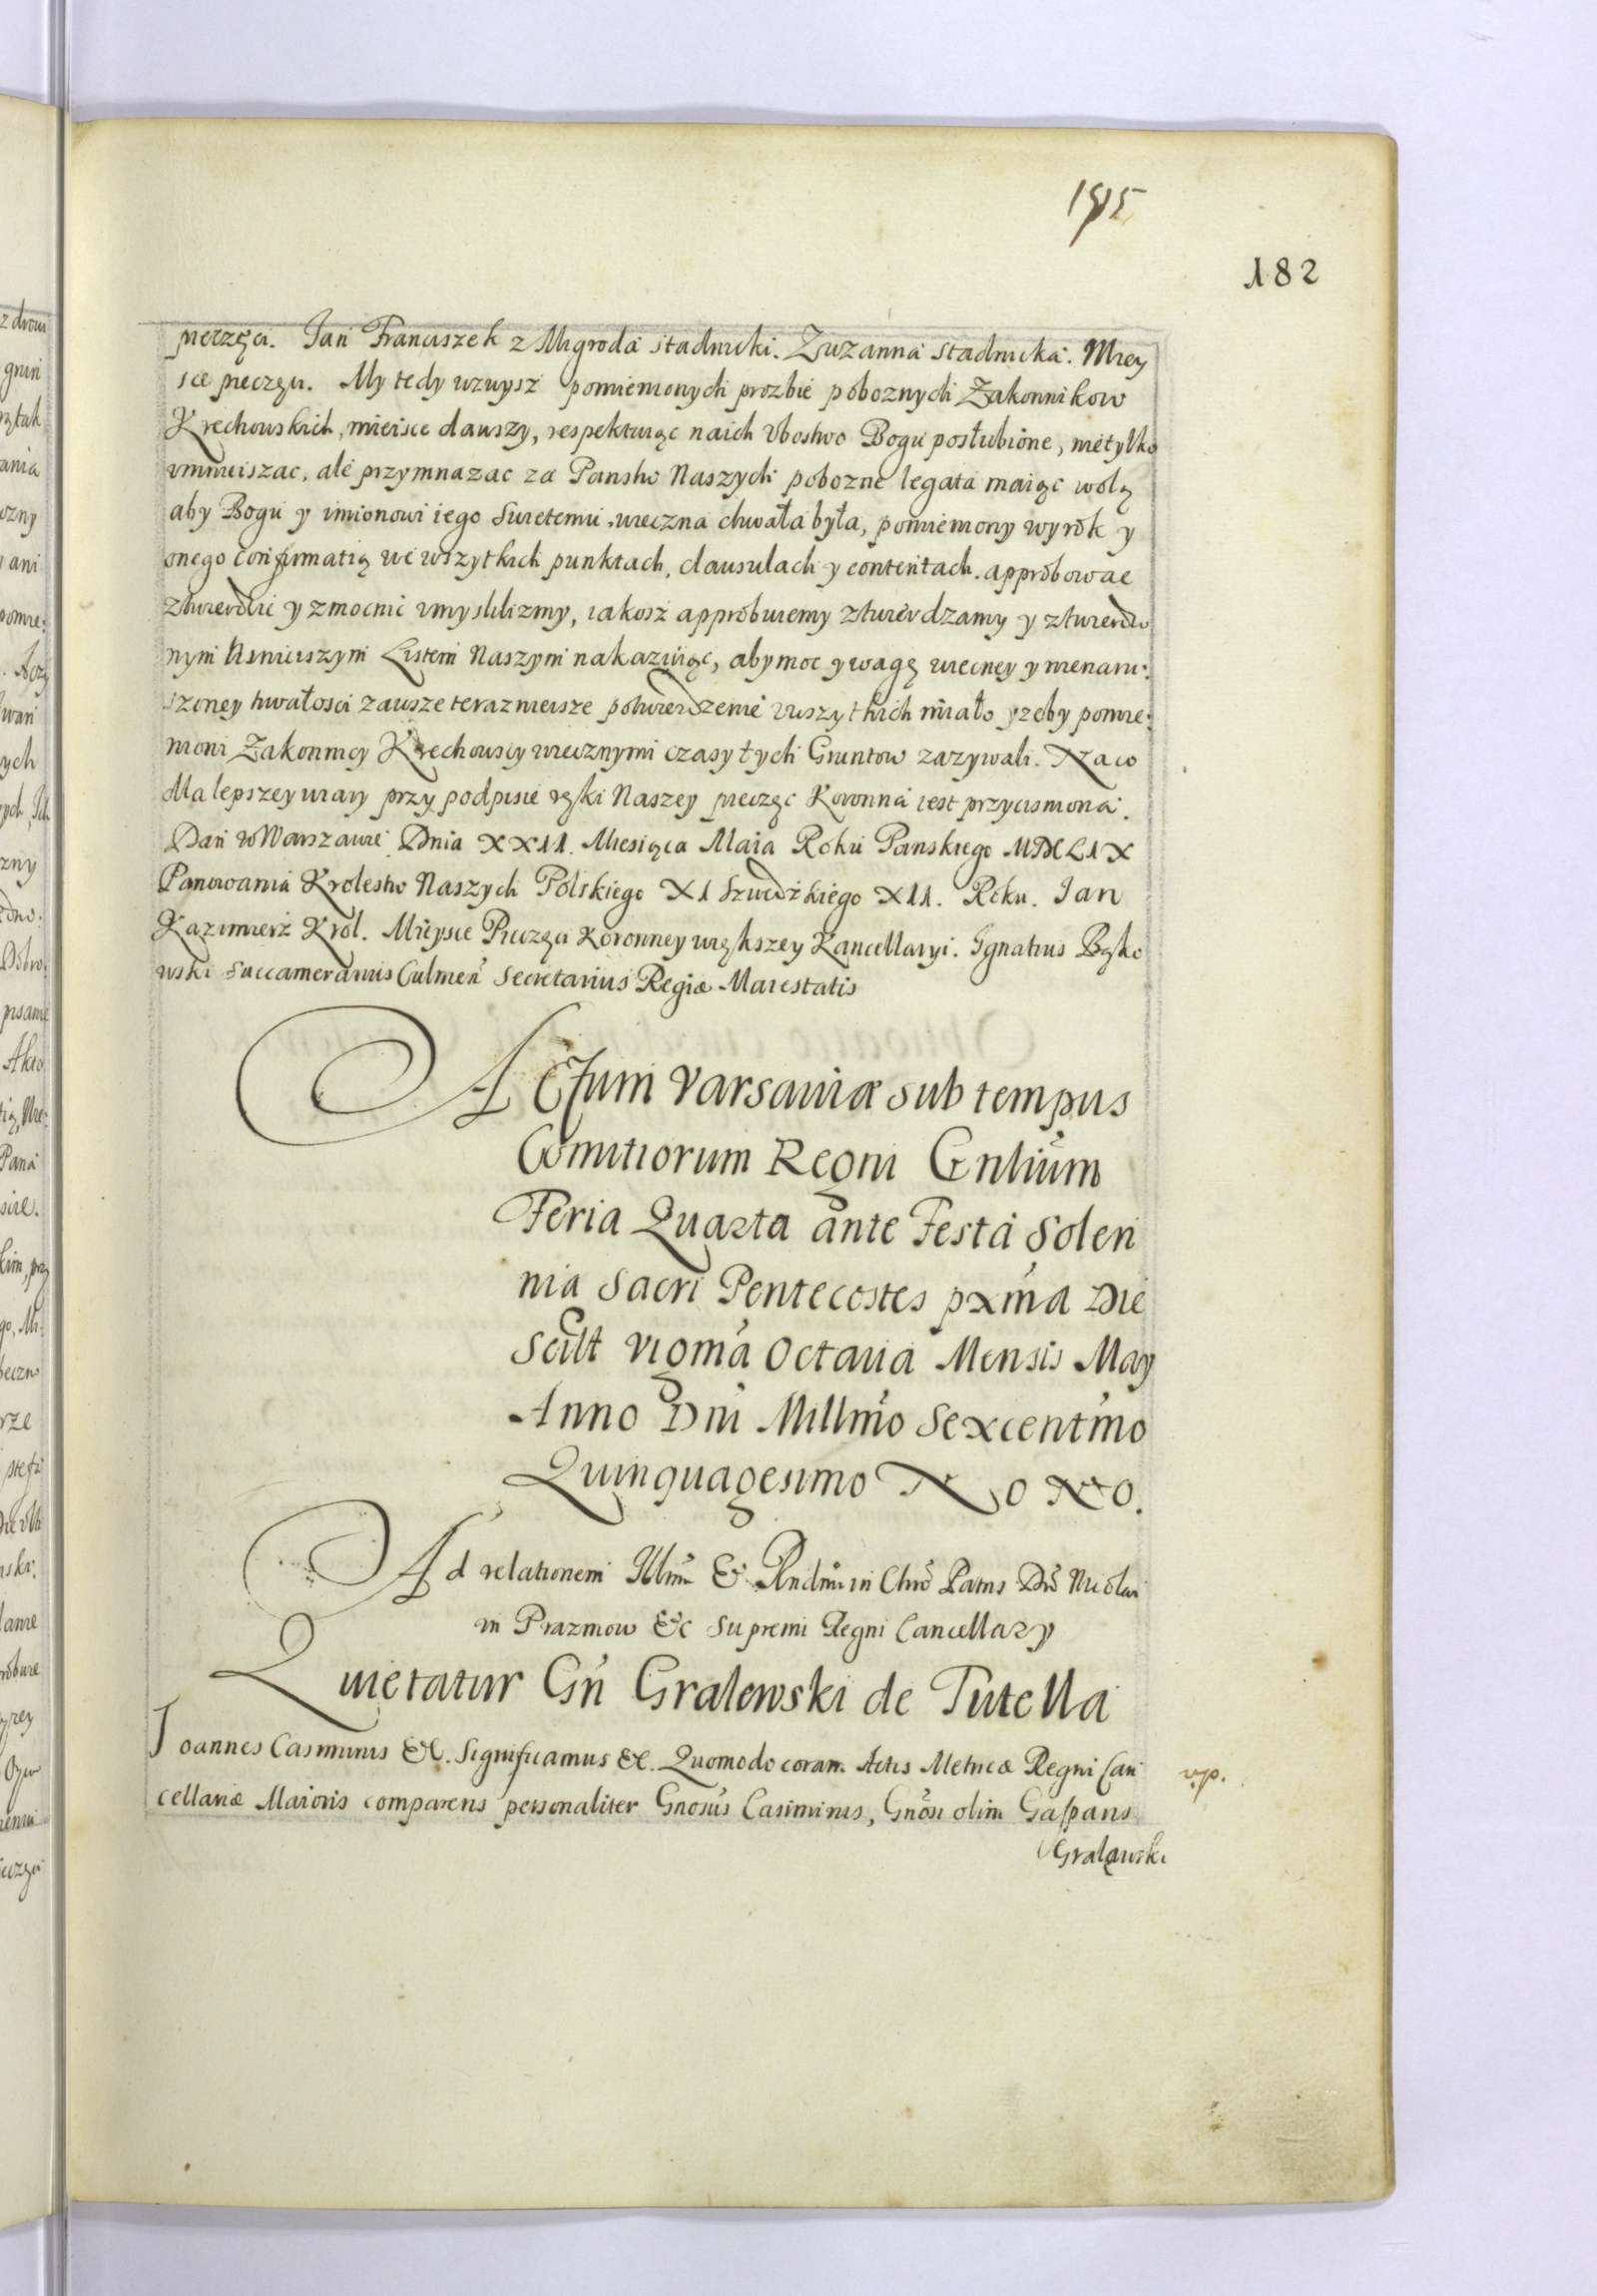 182
pieczęci. Jan Franciszek z Migroda Stadnicki. Zuzanna Stadnicka. Miey
sce pieczęci. My tedy wzwysz pomienionych prozbie poboznych Zakonnikow
Krechowskich, mieisce dawszy, respektuiąc na ich Vbostwo Bogu poslubione, nietylko
vmnieiszac, ale przymnazac za Panstw Naszych pobozne legata maiąc wolą
aby Bogu y imionowi iego Swietemu, wieczna chwała była, pomieniony wyrok y
onego confirmatią we wszytkich punktach, clausulach y contentach approbowac
ztwierdzic y zmocnic vmyslilizmy, iakosz approbuiemy ztwierdzamy y ztwierdzo
nym Ninieiszym Listem Naszym nakazuiąc, aby moc y wagę wieczney y nienaru:
szoney trwałosci zawsze terazniejsze potwierdzenie vwszytkich miało yzeby pomie:
nioni Zakonnicy Krechowscy wiecznymi czasy tych Gruntow zazywali. Na co
dla lepszey wiary przy podpisie ręki Naszey pieczęc Koronna iest przycisniona.
Dan w Warszawie Dnia XXII. Miesiąca Maia Roku Panskiego MDCLIX
Panowania Krolestw Naszych Polskiego XI Szwedzkiego XII. Roku. Jan
Kazimierz Krol. Mieysce Pieczęci Koronney większey Kancellaryi. Ignatius Bąko
wski Succamerarius Culmen Secretarius Regiæ Maiestatis
Actum Varsaviæ sub tempus
Comitiorum Regni Gnlium
Feria Quarta ante Festa Solen
nia Sacri Pentecostes pxma Die
Scilt vigma Octava Mensis May
Anno Dni Millmo Sexcentmo
Quinquagesimo Nono.
Ad relationem Illmi & Rndmi in Chro Patris Dni Nicolai
in Prazmow &c Supremi Regni Cancellary
Quietatur Gn Gralewski de Tutella
Joannes Casimirus &c. Significamus &c. Quomodo coram Actis Metricæ Regni Can
cellariæ Maioris comparens personaliter Gnosus Casimirus, Gnosi olim Gasparis
Gralewski